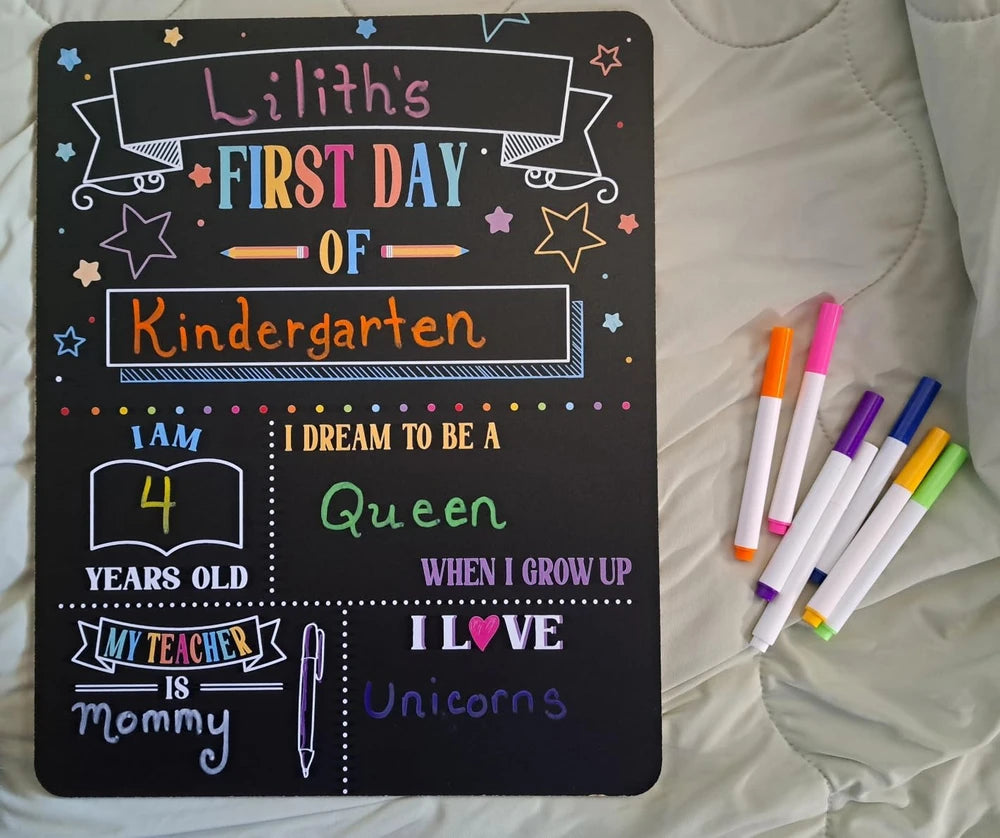 Lilith's
FIRST DAY
OF
Kindergarten
I AM
4
YEARS OLD
I DREAM TO BE A
Queen
WHEN I GROW UP
MY TEACHER
IS
Mommy
I LOVE
Unicorns